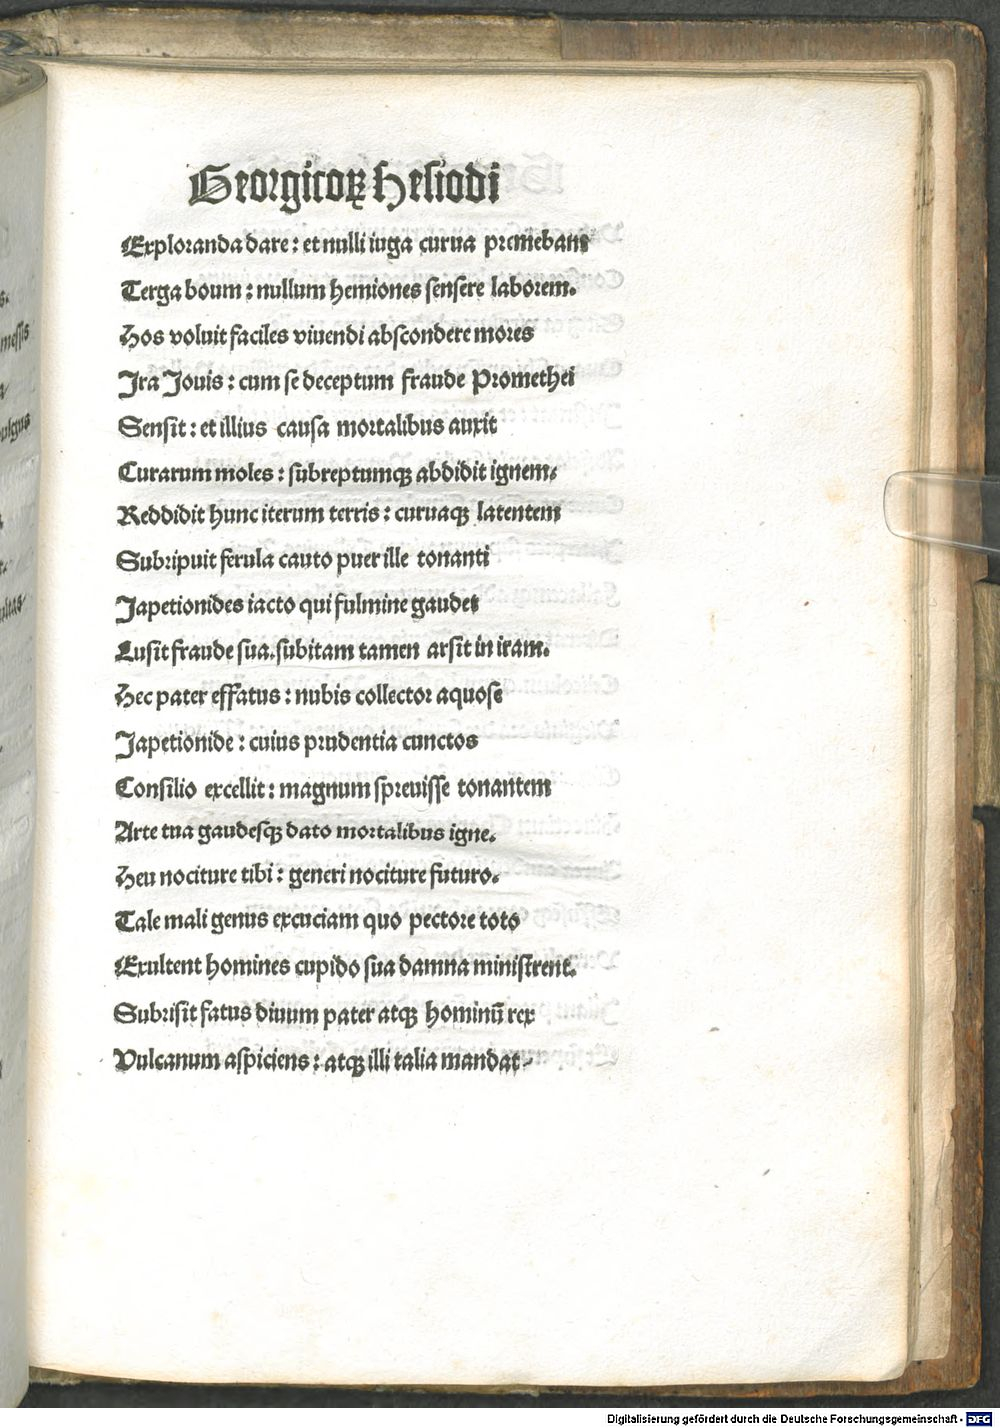 Georgicoꝝ Hesiodi
Exploranda dare: et nulli iuga curua premebant
Terga boum: nullum hemiones sensere laborem.
Hos voluit faciles viuendi abscondere mores
Ira Jouis: cum se deceptum fraude Promethei
Sensit: et illius causa mortalibus auxit
Curarum moles: subreptumqꝫ abdidit ignem.
Reddidit hunc iterum terris: curuaqꝫ latentem
Subripuit ferula cauto puer ille tonanti
Japetionides iacto qui fulmine gaudet
Lusit fraude sua. subitam tamen arsit in iram.
Hec pater effatus: nubis collector aquose
Japetionide: cuius prudentia cunctos
Consilio excellit: magnum spreuisse tonantem
Arte tua gaudesqꝫ dato mortalibus igne.
Heu nociture tibi: generi nociture futuro.
Tale mali genus excuciam quo pectore toto
Exultent homines cupido sua damna ministrent.
Subrisit fatus diuum pater atqꝫ hominū rex
Vulcanum aspiciens: atqꝫ illi talia mandat.
messis
vulgus
Digitalisierung gefördert durch die Deutsche Forschungsgemeinschaft - DFG